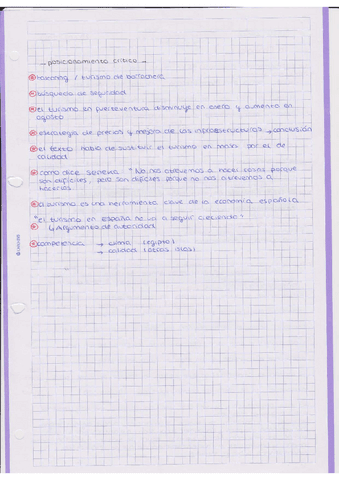 posicionamiento crítico
balconing / turismo de borrachera
búsqueda de seguridad
el turismo en Fuerteventura disminuye en enero y aumenta en
agosto
estrategia de precios y mejora de las infraestructuras → conclusión
el texto habla de sustituir el turismo en masa por el de
calidad
como dice Séneca "No nos atrevemos a hacer cosas porque
son difíciles, pero son difíciles porque no nos atrevemos a
hacerlas
el turismo es una herramienta clave de la economía española
"el turismo en España no va a seguir creciendo"
↳ Argumento de autoridad
competencia → clima (egipto)
→ calidad (otras islas)